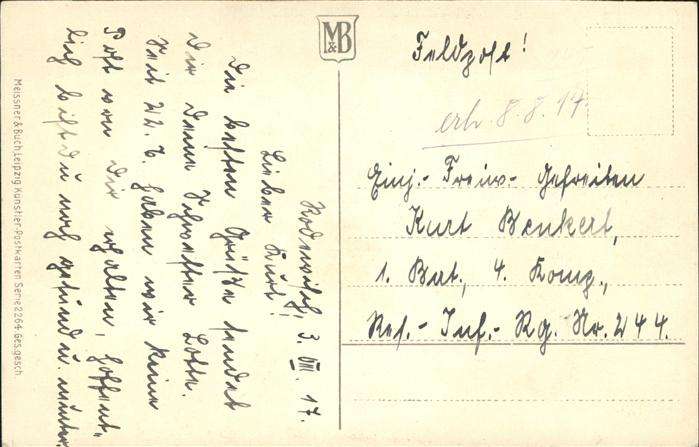 Feldpost!
erh. 8.8.17.
Einj.- Freiw.- Gefreiten
Kurt Benkert,
1. Bat., 4. Komp.,
Res.- Inf.- Rg. Nr. 244.
M&B
3. VIII. 17.
Lieber Kurt!
Die besten Grüße sendet
Dir Deine Schwester Lotte.
Seit 22. 7. haben wir keine
Post von Dir erhalten, hoffent-
lich bist Du noch gesund u. munter.
Meissner & Buch Leipzig Künstler-Postkarten Serie 2264. Ges. gesch.